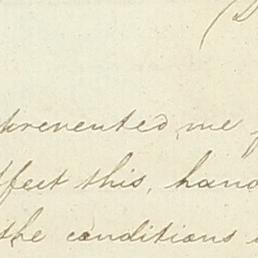 prevented me
ffect this, hand
the conditions